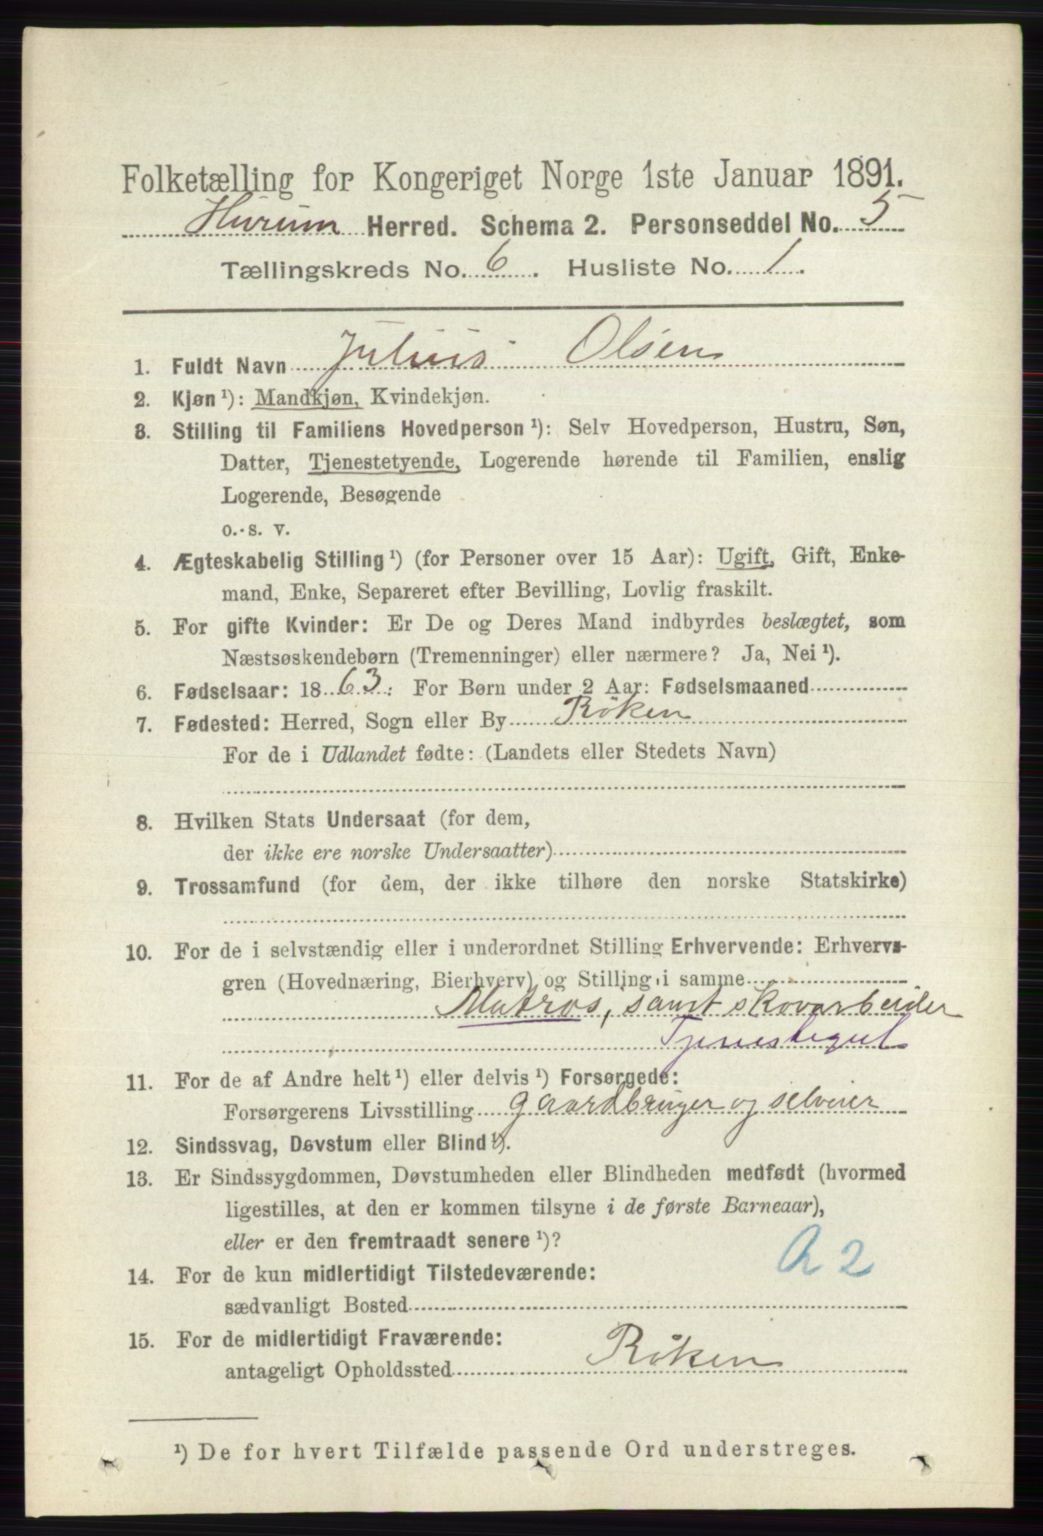 Folketælling for Kongeriget Norge 1ste Januar 1891.
Hurum Herred. Schema 2. Personseddel No. 5
Tællingskreds No. 6. Husliste No. 1.
1. Fuldt Navn Julius Olsen
2. Kjøn ¹): Mandkjøn, Kvindekjøn.
3. Stilling til Familiens Hovedperson ¹): Selv Hovedperson, Hustru, Søn,
Datter, Tjenestetyende, Logerende hørende til Familien, enslig
Logerende, Besøgende
o. s. v.
4. Ægteskabelig Stilling ¹) (for Personer over 15 Aar): Ugift, Gift, Enke-
mand, Enke, Separeret efter Bevilling, Lovlig fraskilt.
5. For gifte Kvinder: Er De og Deres Mand indbyrdes beslægtet, som
Næstsøskendebørn (Tremenninger) eller nærmere? Ja, Nei ¹).
6. Fødselsaar: 1863. For Børn under 2 Aar: Fødselsmaaned
7. Fødested: Herred, Sogn eller By Röken
For de i Udlandet fødte: (Landets eller Stedets Navn)
8. Hvilken Stats Undersaat (for dem,
der ikke ere norske Undersaatter)
9. Trossamfund (for dem, der ikke tilhøre den norske Statskirke)
10. For de i selvstændig eller i underordnet Stilling Erhvervende: Erhvervs-
gren (Hovednæring, Bierhverv) og Stilling i samme
Matros, samt skovarbeider
Tjenestegut
11. For de af Andre helt ¹) eller delvis ¹) Forsørgede:
Forsørgerens Livsstilling gaardbruger og selveier
12. Sindssvag, Døvstum eller Blind ¹).
13. Er Sindssygdommen, Døvstumheden eller Blindheden medfødt (hvormed
ligestilles, at den er kommen tilsyne i de første Barneaar),
eller er den fremtraadt senere ¹)?
A 2
14. For de kun midlertidigt Tilstedeværende:
sædvanligt Bosted
15. For de midlertidigt Fraværende:
antageligt Opholdssted Röken
¹) De for hvert Tilfælde passende Ord understreges.